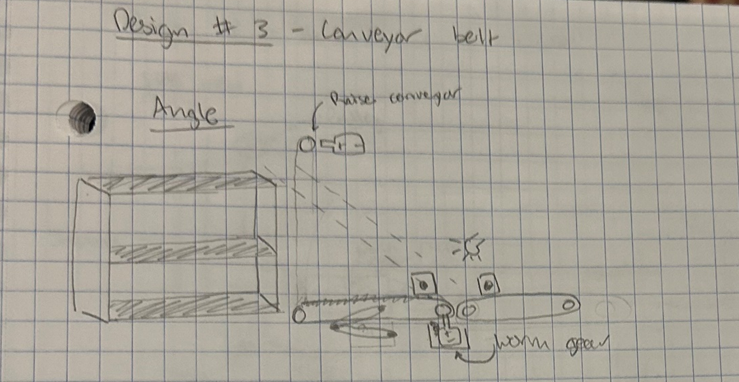 Design # 3 - Conveyor belt
Angle
Raise conveyor
worm gear